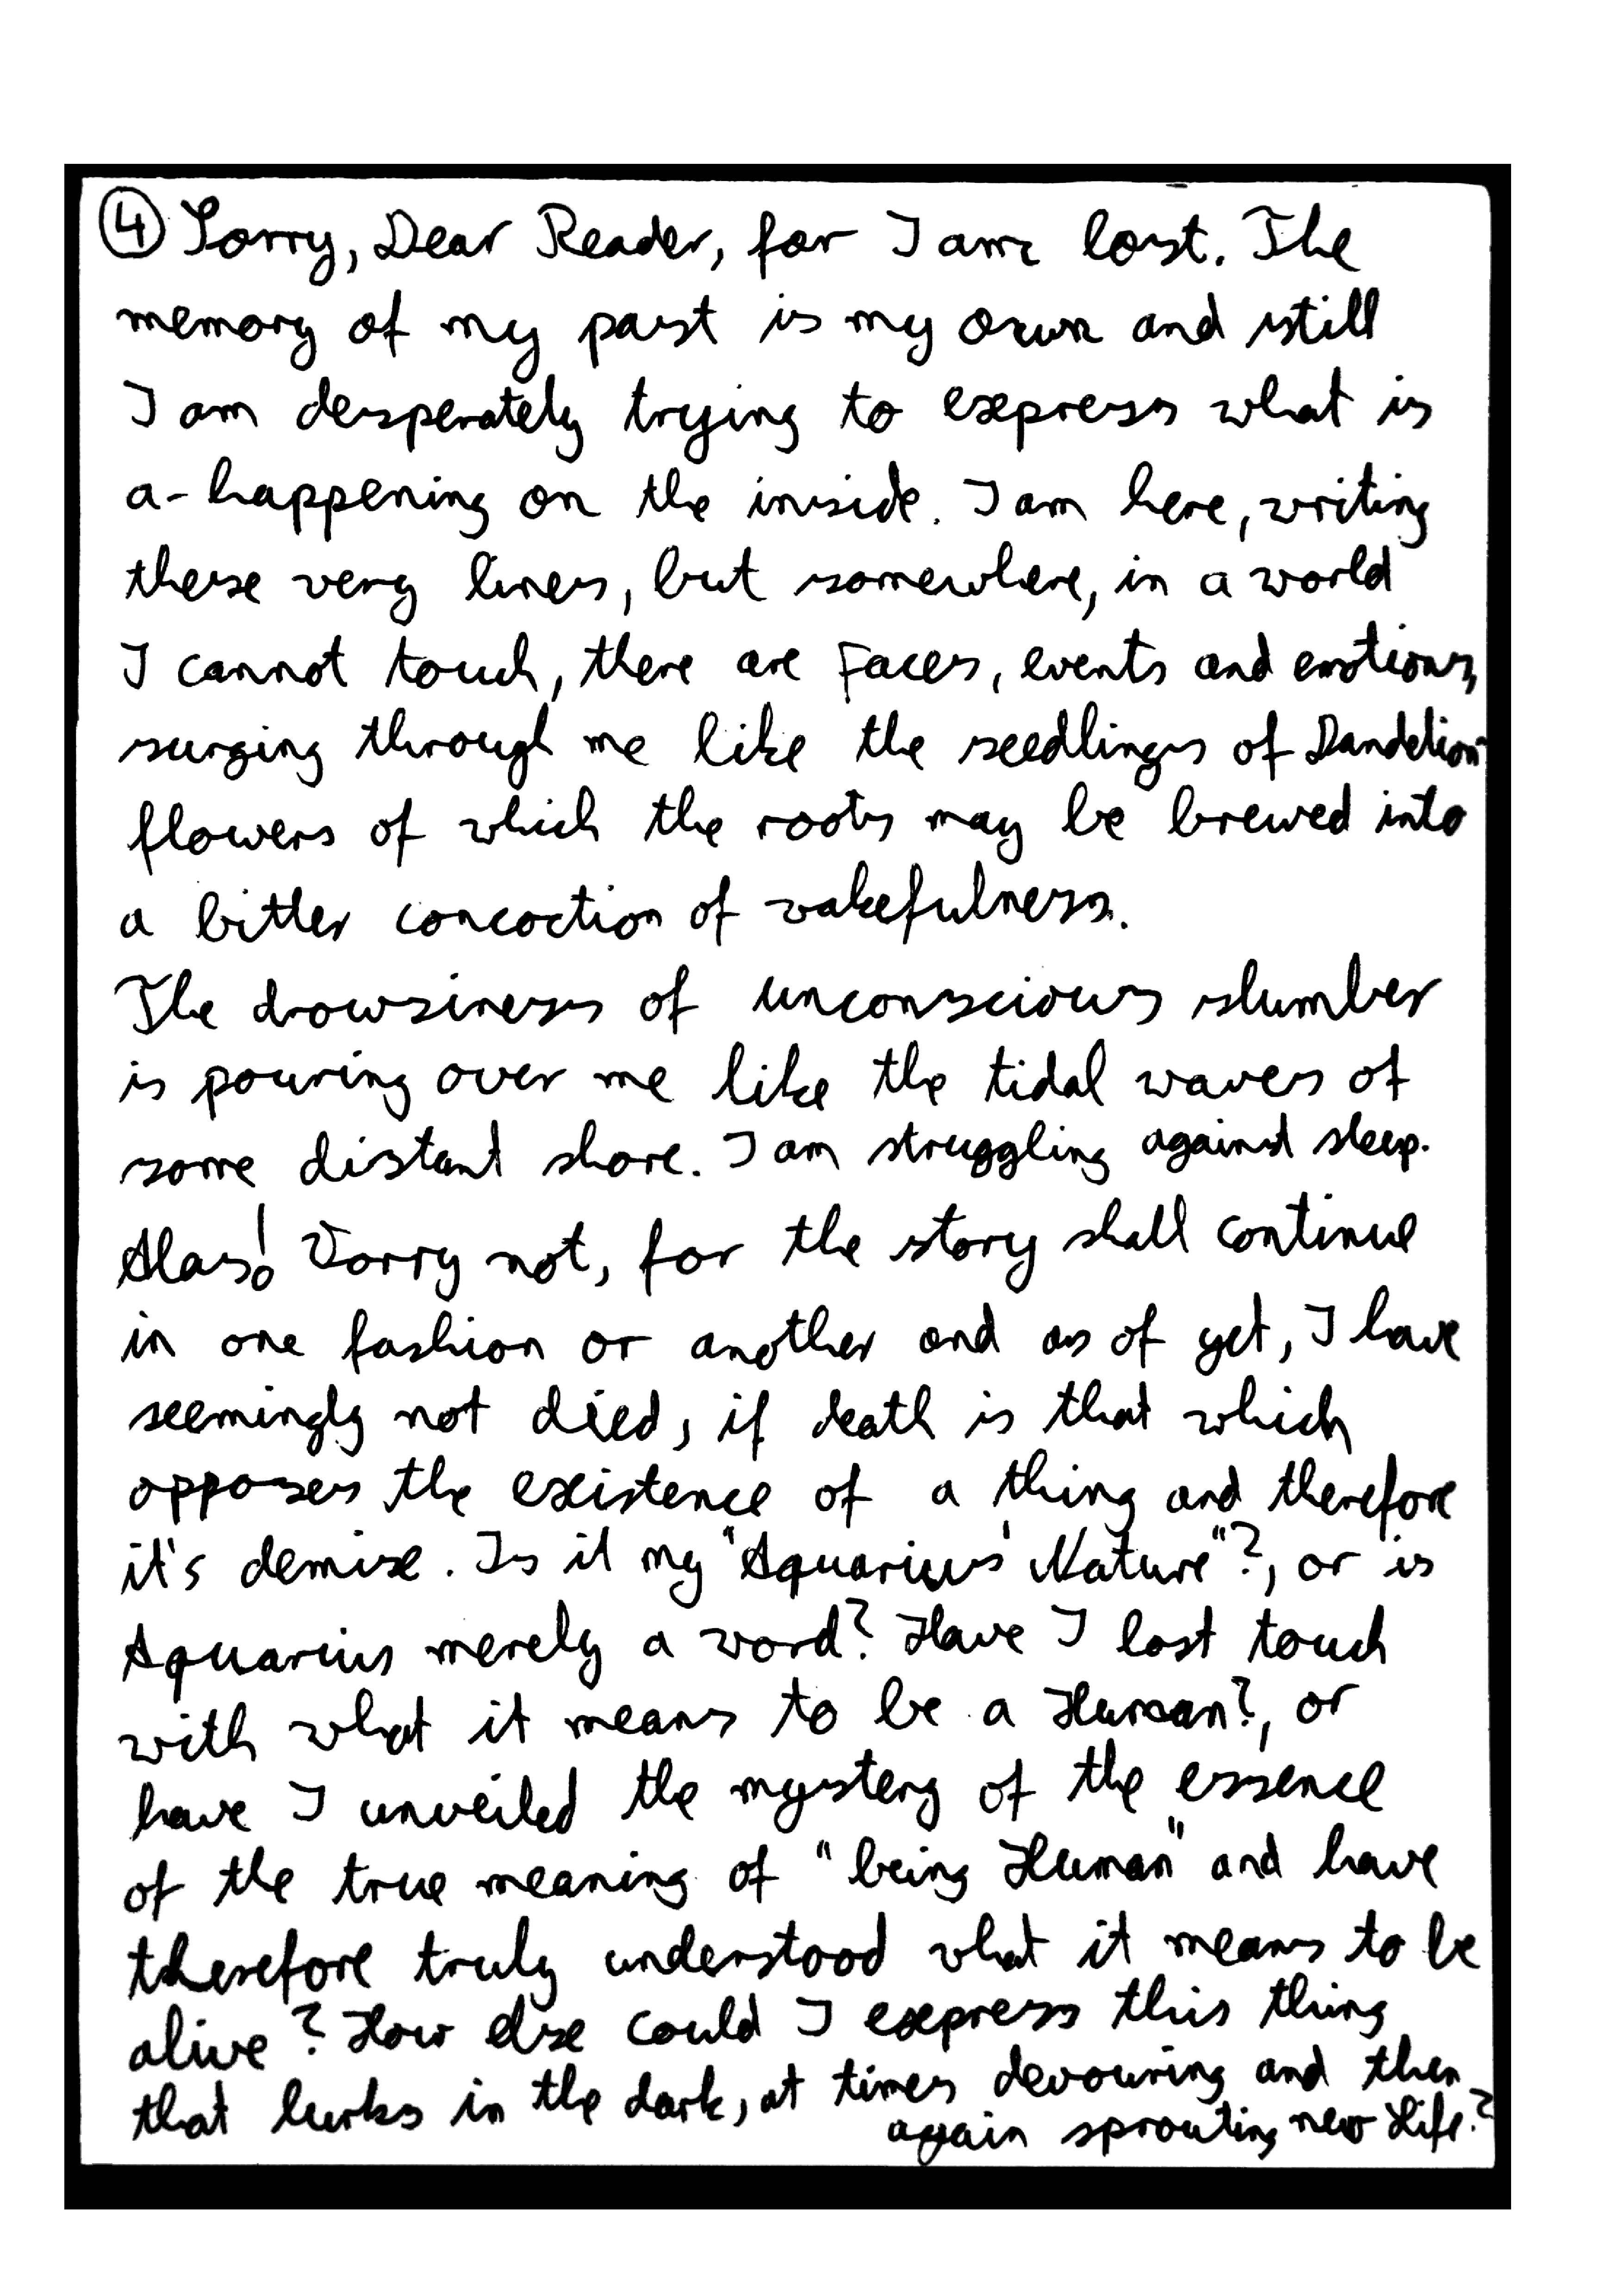 ④ Sorry, Dear Reader, for I am lost. The
memory of my past is my own and still
I am desperately trying to express what is
a-happening on the inside. I am here, writing
these very lines, but somewhere, in a world
I cannot touch, there are Faces, events and emotions,
surging through me like the seedlings of Dandelion
flowers of which the roots may be brewed into
a bitter concoction of wakefulness.
The drowsiness of unconscious slumber
is pouring over me like the tidal waves of
some distant shore. I am struggling against sleep.
Alas! Worry not, for the story shall continue
in one fashion or another and as of yet, I have
seemingly not died, if death is that which
opposes the existence of a thing and therefore
it's demise. Is it my "Aquarius' Nature"?, or is
Aquarius merely a word? Have I lost touch
with what it means to be a Human?, or
have I unveiled the mystery of the essence
of the true meaning of "being Human" and have
therefore truly understood what it means to be
alive? How else could I express this thing
that lurks in the dark, at times devouring and then
again sprouting new Life?